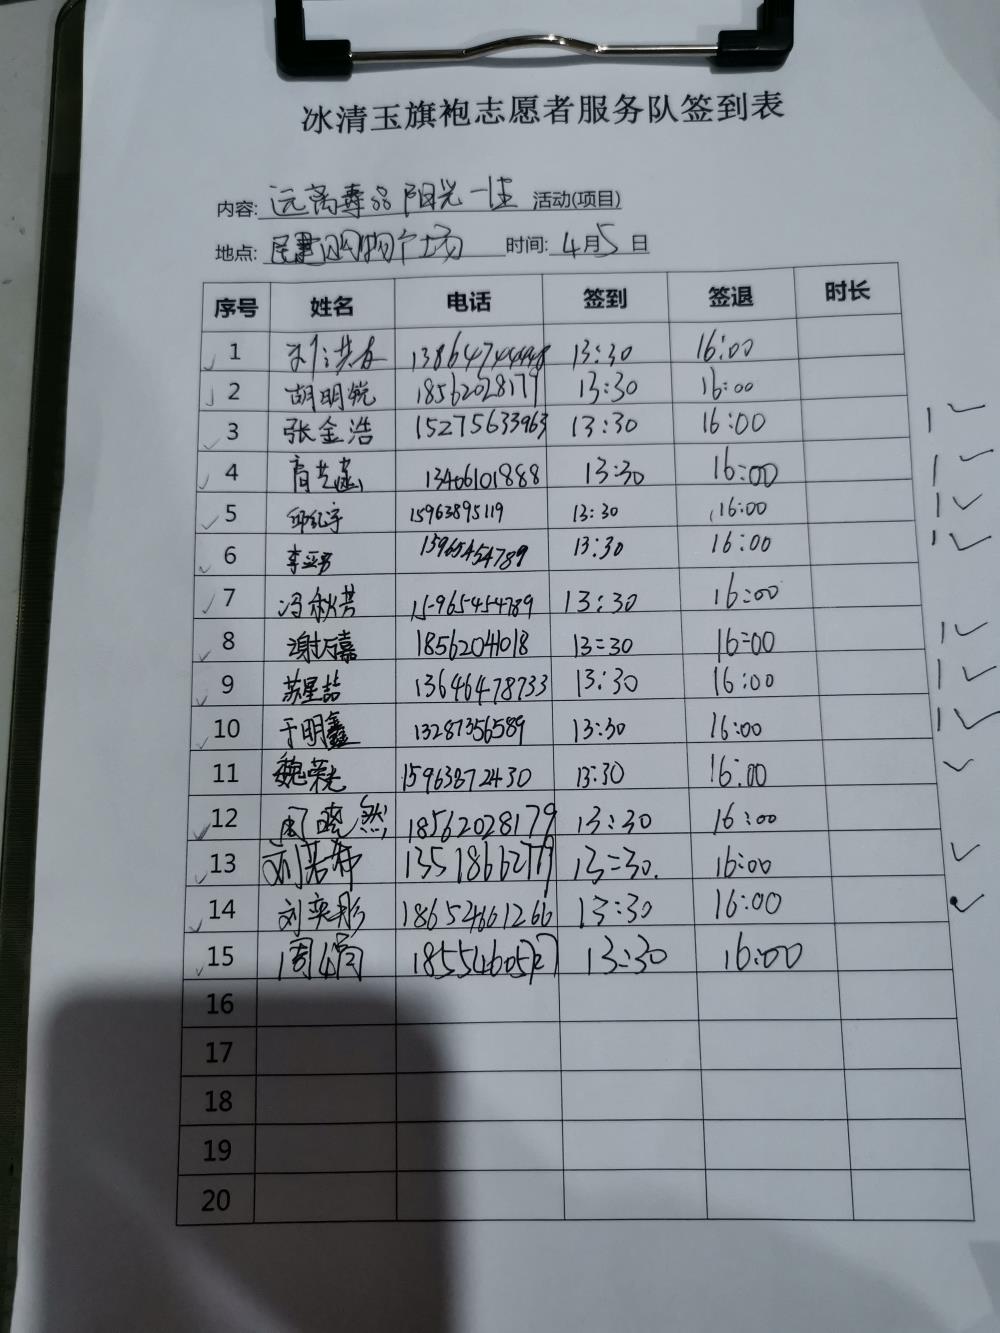 冰清玉旗袍志愿者服务队签到表
内容: 远离毒品阳光一生 活动(项目)
地点: 民惠购物广场 时间: 4月5日
序号 姓名 电话 签到 签退 时长
1 13864744448 13:30 16:00
2 胡明锐 18562028179 13:30 16:00
3 张金浩 15275633963 13:30 16:00
4 13406101888 13:30 16:00
5 邱纪宇 15963895119 13:30 16:00
6 15965454789 13:30 16:00
7 冯秋芳 15965454789 13:30 16:00
8 谢坊嘉 18562041018 13:30 16:00
9 苏星喆 13646478733 13:30 16:00
10 于明鑫 13287356589 13:30 16:00
11 魏荣光 15963872430 13:30 16:00
12 周晓然 18562028179 13:30 16:00
13 刘若郗 13:30 16:00
14 刘奕彤 18652461266 13:30 16:00
15 周娟 13:30 16:00
16
17
18
19
20